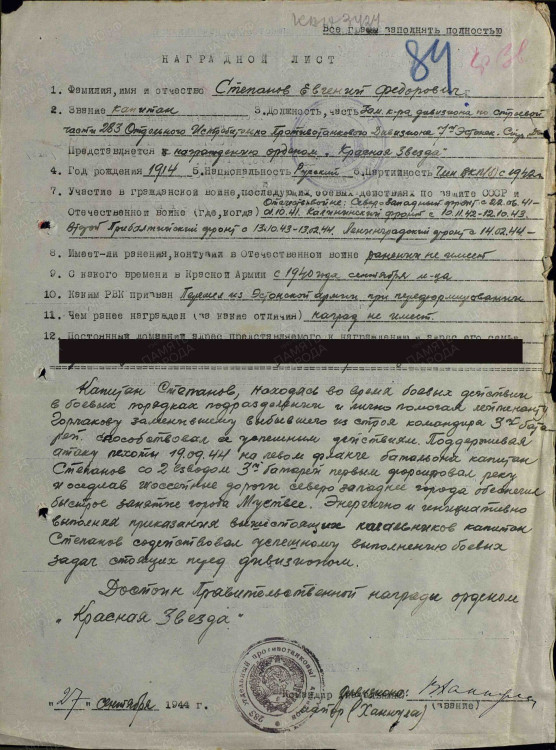 Все графы заполнять полностью
84
НАГРАДНОЙ ЛИСТ
1. Фамилия, имя и отчество Степанов Евгений Федорович
2. Звание капитан 3. Должность, часть Зам. к-ра дивизиона по строевой
части 283 Отдельного Истребительно Противотанкового Дивизиона 7го Эстонск.
Представляется к награждению орденом „Красная Звезда"
4. Год рождения 1914 5. Национальность Русский 6. Партийность Член ВКП(б) с 1942г
7. Участие в гражданской войне, последующих боевых действиях по защите СССР и
Отечественной войне: Северозападный фронт с 22.06.41-
Отечественной войне (где, когда) 01.10.41. Калининский фронт с 10.11.42-12.10.43.
Второй Прибалтийский фронт с 13.10.43-13.02.44. Ленинградский фронт с 14.02.44-
8. Имеет-ли ранения, контузии в Отечественной войне ранений не имеет
9. С какого времени в Красной Армии с 1940 года сентября м-ца
10. Каким РВК призван Перешел из Эстонской армии при переформировании
11. Чем ранее награжден (за какие отличия) наград не имеет.
12. Постоянный домашний адрес представляемого к награждению и адрес его семьи
Капитан Степанов, находясь во время боевых действий
в боевых порядках подразделений и лично помогая лейтенанту
Горчакову заменившему выбывшего из строя командира 3ей бата
реи. способствовал её успешным действиям. Поддерживая
атаку пехоты 19.09.44 на левом фланге батальона капитан
Степанов со 2 взводом 3ей батареи первым форсировал реку
и оседлав шоссейные дороги северо западнее города обеспечил
быстрое занятие города Муствее. Энергично и инициативно
выполняя приказания вышестоящих начальников капитан
Степанов содействовал успешному выполнению боевых
задач стоящих перед дивизионом.
Достоин Правительственной награды орденом
„Красная Звезда"
Командир дивизиона:
"27" сентября 1944 г.
(звание)